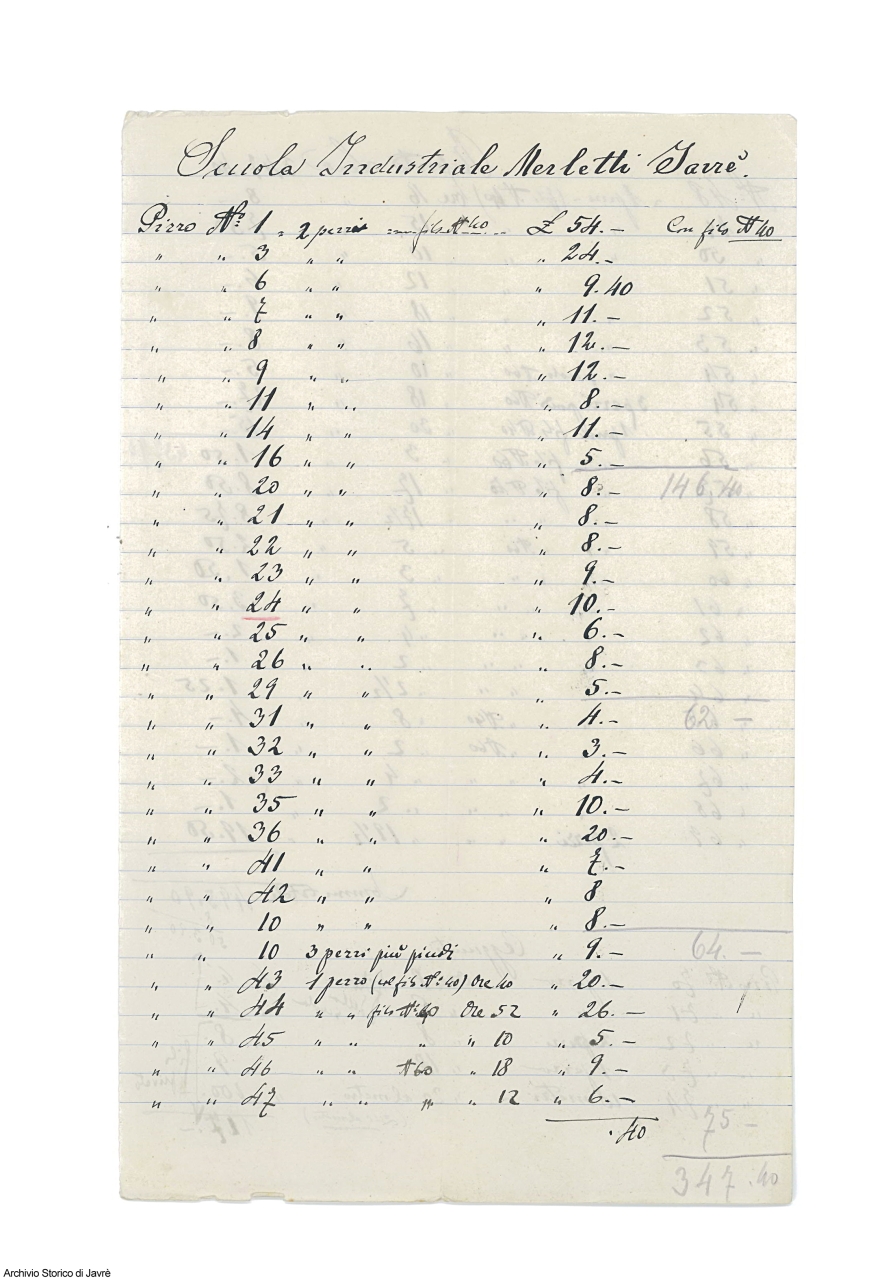 Scuola Industriale Merletti Javrè.
Pizzo N.º 1 = 2 pezzi filo N 40 £ 54.— Con filo N 40
" " 3 " " " 24.—
" " 6 " " " 9.40
" " 7 " " " 11.—
" " 8 " " " 12.—
" " 9 " " " 12.—
" " 11 " " " 8.—
" " 14 " " " 11.—
" " 16 " " " 5.—
" " 20 " " " 8.— 146.40
" " 21 " " " 8.—
" " 22 " " " 8.—
" " 23 " " " 9.—
" " 24 " " " 10.—
" " 25 " " " 6.—
" " 26 " " " 8.—
" " 29 " " " 5.—
" " 31 " " " 4.— 62.—
" " 32 " " " 3.—
" " 33 " " " 4.—
" " 35 " " " 10.—
" " 36 " " " 20.—
" " 41 " " " 7.—
" " 42 " " " 8
" " 10 " " " 8.—
" " 10 3 pezzi più " 9.— 64.—
" " 43 1 pezzo (col filo N.º 40) Ore 40 " 20.—
" " 44 " " filo N.º Ore 52 " 26.—
" " 45 " " " " 10 " 5.—
" " 46 " " N 60 " 18 " 9.—
" " 47 " " " " 12 " 6.—
.40 75—
347.40
Archivio Storico di Javrè